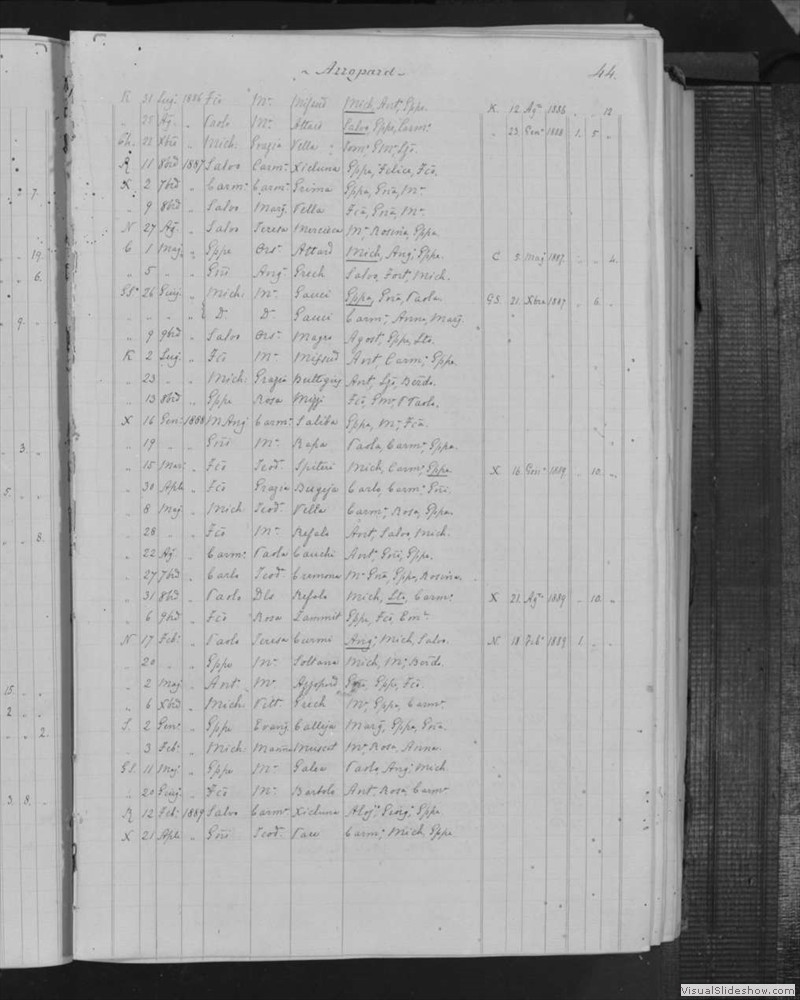 Azzopard
44.
K 21 Lug. 1886 Fco Ma Mifsud Mich, Ant, Gppe. K. 12 Agto 1886 . . 12
" 25 Ag. " Paolo Ma Attard Salvo, Gppe, Carm. " 23 Gen 1888 1. 5. "
Ch. 22 Xbre " Mich. Grazia Vella
R 11 8bre 1887 Salvo Carm. Xicluna Gppa, Felice, Fco.
X 2 7bre " Carm. Carm. Grima Gppa, Gna, Ma
" 9 8bre " Salvo Marg. Vella Fca, Gna, Ma
N 27 Ag. " Salvo Teresa Mercieca Ma Rosina, Gppa.
C 1 Mag. " Gppe Ors. Attard Mich, Ang, Gppe. C 5 Mag 1887. . . 4.
" 5 " " Gni Ang. Grech Salvo, Fort, Mich.
GS. 26 Giug. " Mich. Ma Gauci Gppa, Gna, Paola. GS. 21 Xbre 1887 . 6.
" " " " D. D. Gauci Carm, Anna, Marg.
" 9 9bre " Salvo Ors. Magro Agost, Gppe, Lto.
K 2 Lug. " Fco Ma Mifsud Ant, Carm, Gppe.
" 23 " " Mich. Grazia Buttigieg Ant, Lgo, Bernardo.
" 13 8bre " Gppe Rosa Mizzi Fco, Em, Paolo.
X 16 Gen. 1888 M Ang Carm. Saliba Gppa, Ma, Fca.
" 19 " " Gni Ma Rapa Paola, Carm, Gppa.
" 15 Mar. " Fco Teod. Spiteri Mich, Carm, Gppe X 16 Gen. 1889 . 10. "
" 30 Aple " Fco Grazia Bugeja Carlo, Carm, Gni.
" 8 Mag " Mich Teod. Vella Carm, Rosa, Gppa.
" 28 " " Fco Ma Refalo Ant, Salvo, Mich.
" 22 Ag. " Carm. Paola Cauchi Ant, Gni, Gppe.
" 27 7bre " Carlo Teod. Cremona Ma Gna, Gppa, Rosina.
" 31 8bre " Paolo Dls Refalo Mich, Lto, Carm. X 21 Ag. 1889 . 10. "
" 6 9bre " Fco Rosa Zammit Gppe, Fco, Em.
N 17 Feb. " Paolo Teresa Curmi Ang, Mich, Salvo. N. 18 Feb. 1889 1. . .
" 20 " " Gppe Ma Soltana Mich, M,
" 2 Mag " Ant. Ma Azzopard Gppe, Fco.
" 6 Xbre " Mich Vitt Grech M, Gppa, Carm.
S. 2 Gen. " Gppe Evang Calleja Marg, Gppa, Gna.
" 3 Feb. " Mich Marina Muscat Ma Rosa, Anna.
GS. 11 Mag " Gppe Ma Galea Paolo, Ang, Mich
" 20 Giug. " Fco Ma Bartolo Ant, Rosa, Carm
R 12 Feb. 1889 Salvo Carm. Xicluna Aloj, Giorg, Gppe
X 21 Aple " Gni Teod. Carm, Mich, Gppe
VisualSlideshow.com